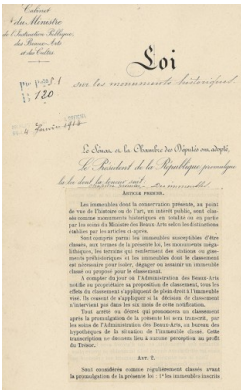 Cabinet
du Ministre
de l'Instruction Publique,
des Beaux-Arts
et des Cultes
Loi
sur les monuments historiques
120
4 Janvier 1914
Le Sénat et la Chambre des Députés ont adopté,
Le Président de la République promulgue
la loi dont la teneur suit:
ARTICLE PREMIER.
Les immeubles dont la conservation présente, au point
de vue de l'histoire ou de l'art, un intérêt public, sont clas-
sés comme monuments historiques en totalité ou en partie
par les soins du Ministre des Beaux-Arts selon les distinctions
établies par les articles ci-après.
Sont compris parmi les immeubles susceptibles d'être
classés, aux termes de la présente loi, les monuments méga-
lithiques, les terrains qui renferment des stations ou gise-
ments préhistoriques et les immeubles dont le classement
est nécessaire pour isoler, dégager ou assainir un immeuble
classé ou proposé pour le classement.
A compter du jour où l'Administration des Beaux-Arts
notifie au propriétaire sa proposition de classement, tous les
effets du classement s'appliquent de plein droit à l'immeuble
visé. Ils cessent de s'appliquer si la décision de classement
n'intervient pas dans les six mois de cette notification.
Tout arrêté ou décret qui prononcera un classement
après la promulgation de la présente loi sera transcrit, par
les soins de l'Administration des Beaux-Arts, au bureau des
hypothèques de la situation de l'immeuble classé. Cette
transcription ne donnera lieu à aucune perception au profit
du Trésor.
ART. 2.
Sont considérés comme régulièrement classés avant
la promulgation de la présente loi : 1° les immeubles inscrits